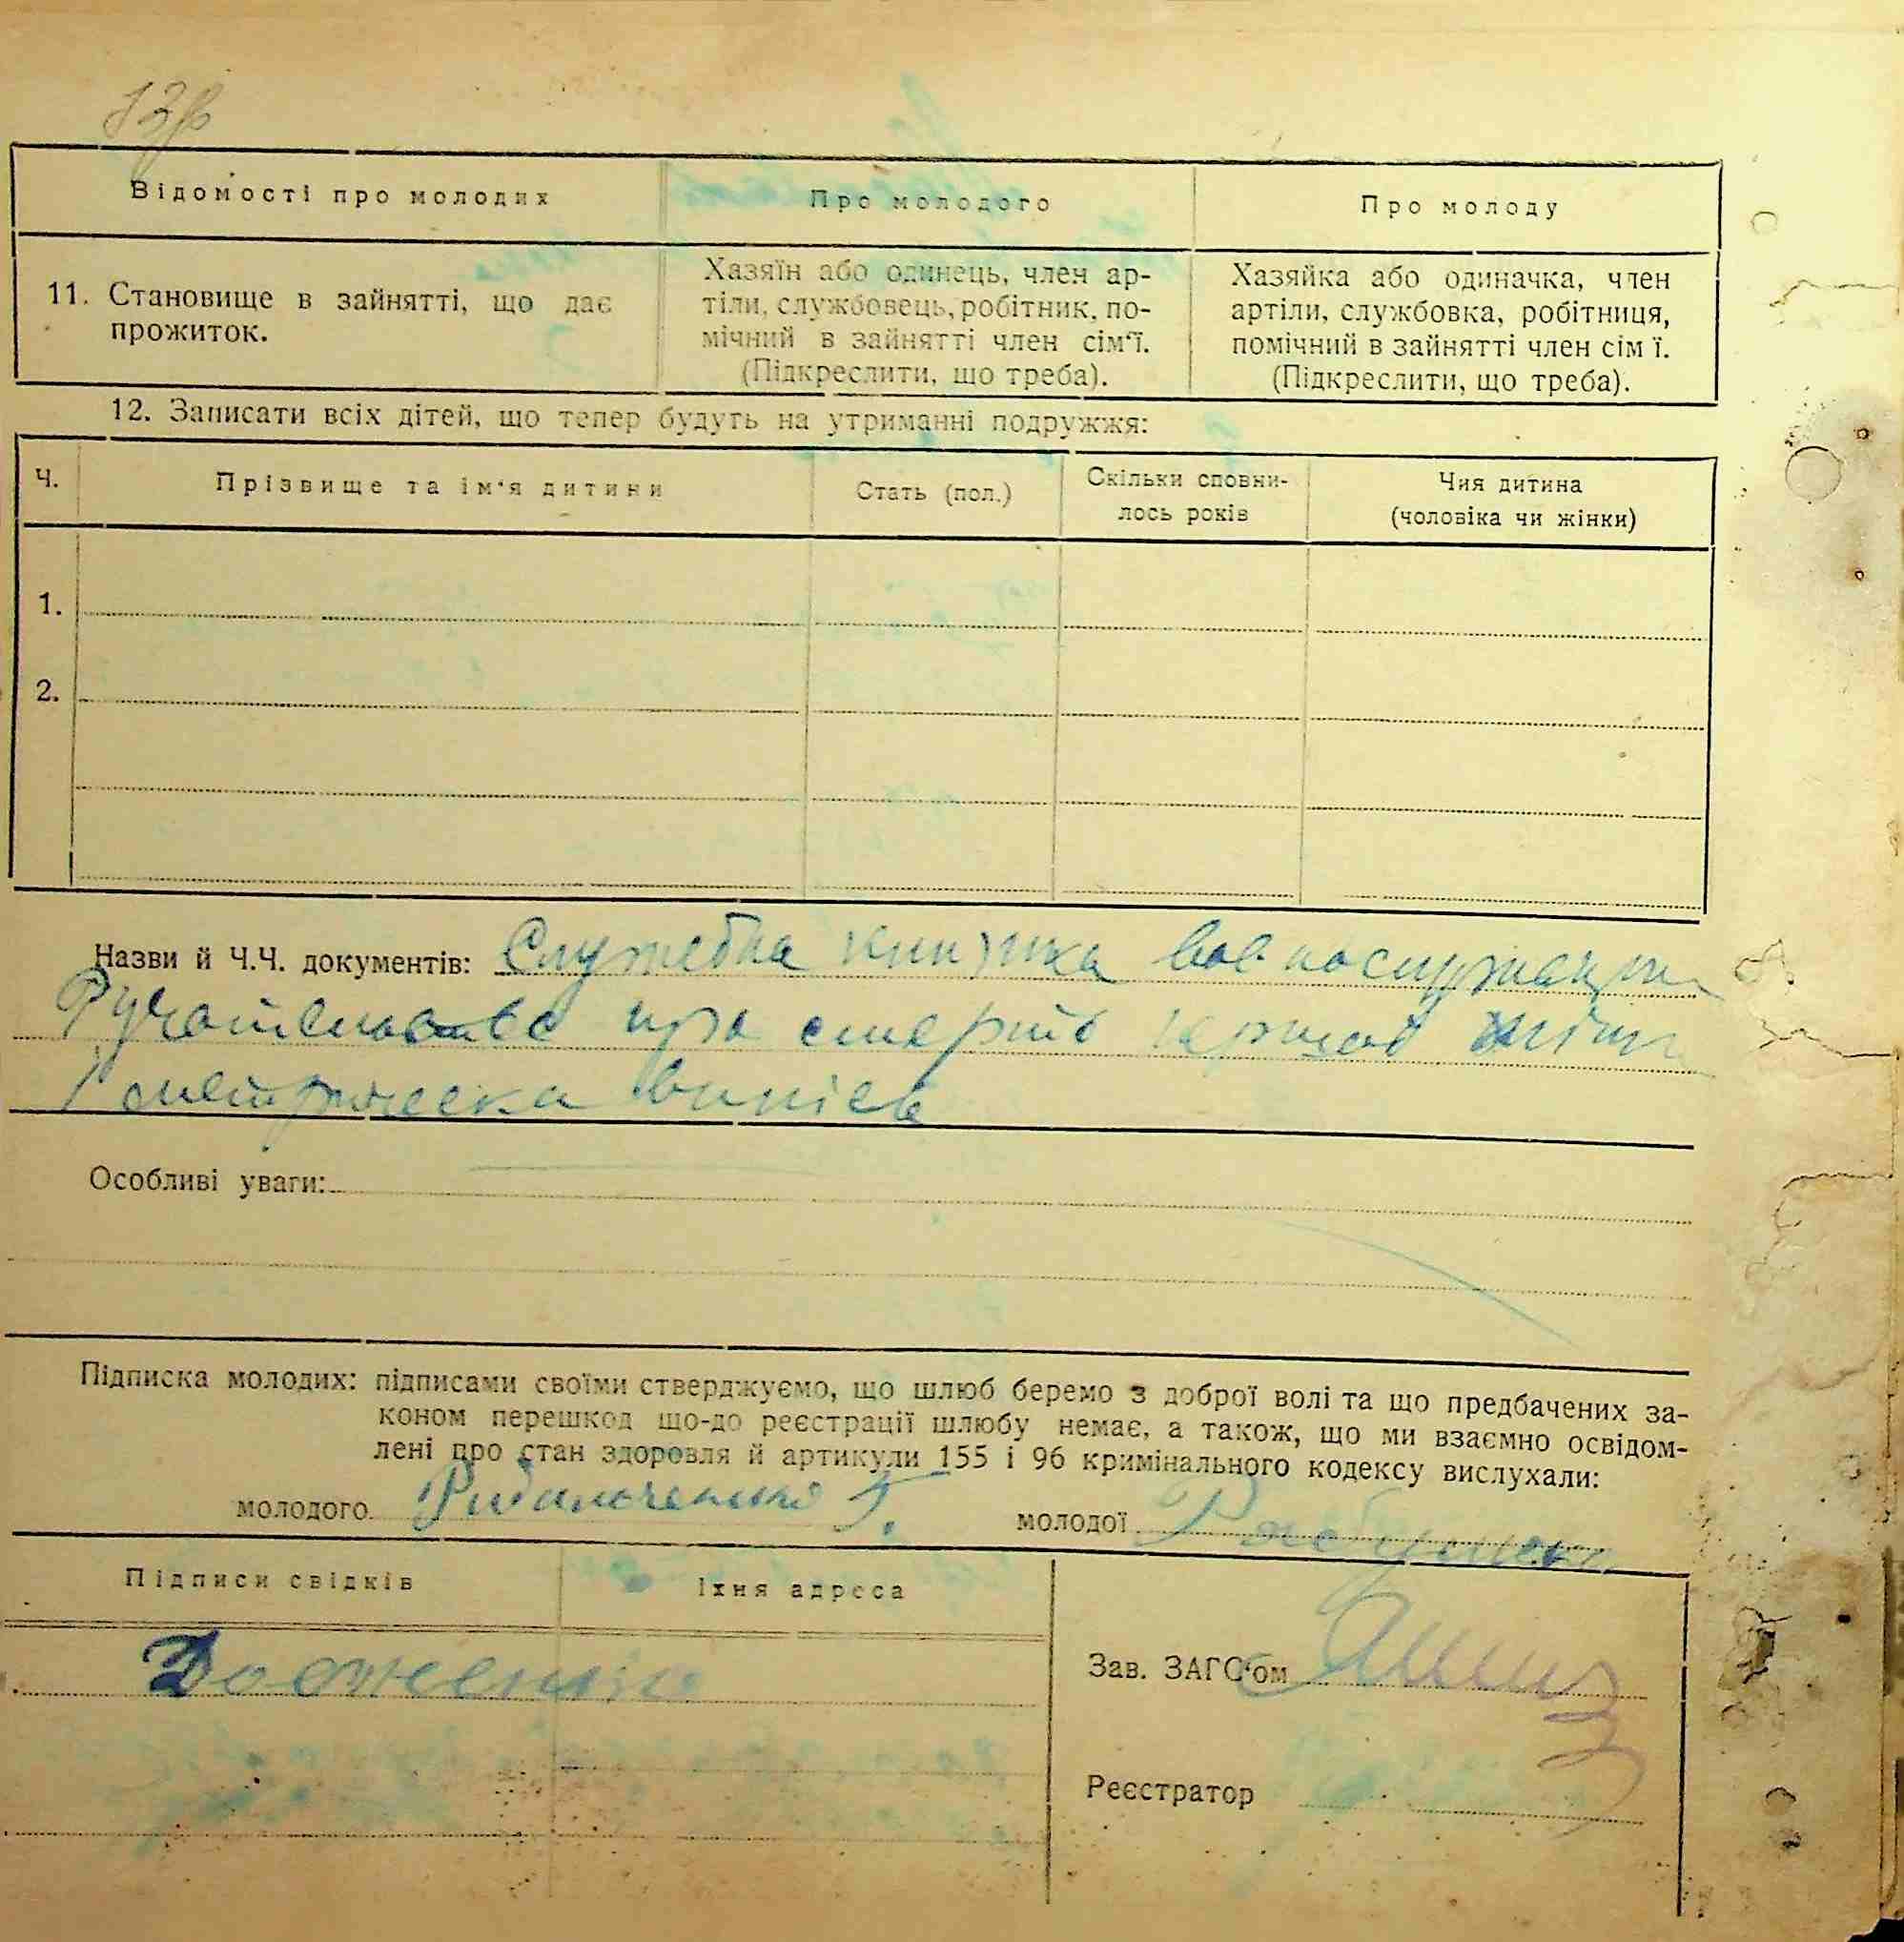 Відомості про молодих Про молодого Про молоду
11. Становище в зайнятті, що дає
прожиток.
Хазяїн або одинець, член ар-
тіли, службовець, робітник, по-
мічний в зайнятті член сім'ї.
(Підкреслити, що треба).
Хазяйка або одиначка, член
артіли, службовка, робітниця,
помічний в зайнятті член сім ї.
(Підкреслити, що треба).
12. Записати всіх дітей, що тепер будуть на утриманні подружжя:
Ч. Прізвище та ім'я дитини Стать (пол.) Скільки сповни-
лось років
Чия дитина
(чоловіка чи жінки)
1.
2.
Назви й Ч.Ч. документів: Служебна книжка
про смерть
випись
Особливі уваги:
Підписка молодих: підписами своїми стверджуємо, що шлюб беремо з доброї волі та що предбачених за-
коном перешкод що-до реєстрації шлюбу немає, а також, що ми взаємно освідом-
лені про стан здоровля й артикули 155 і 96 кримінального кодексу вислухали:
молодого молодої
Підписи свідків Їхня адреса
Зав. ЗАГС'ом
Реєстратор